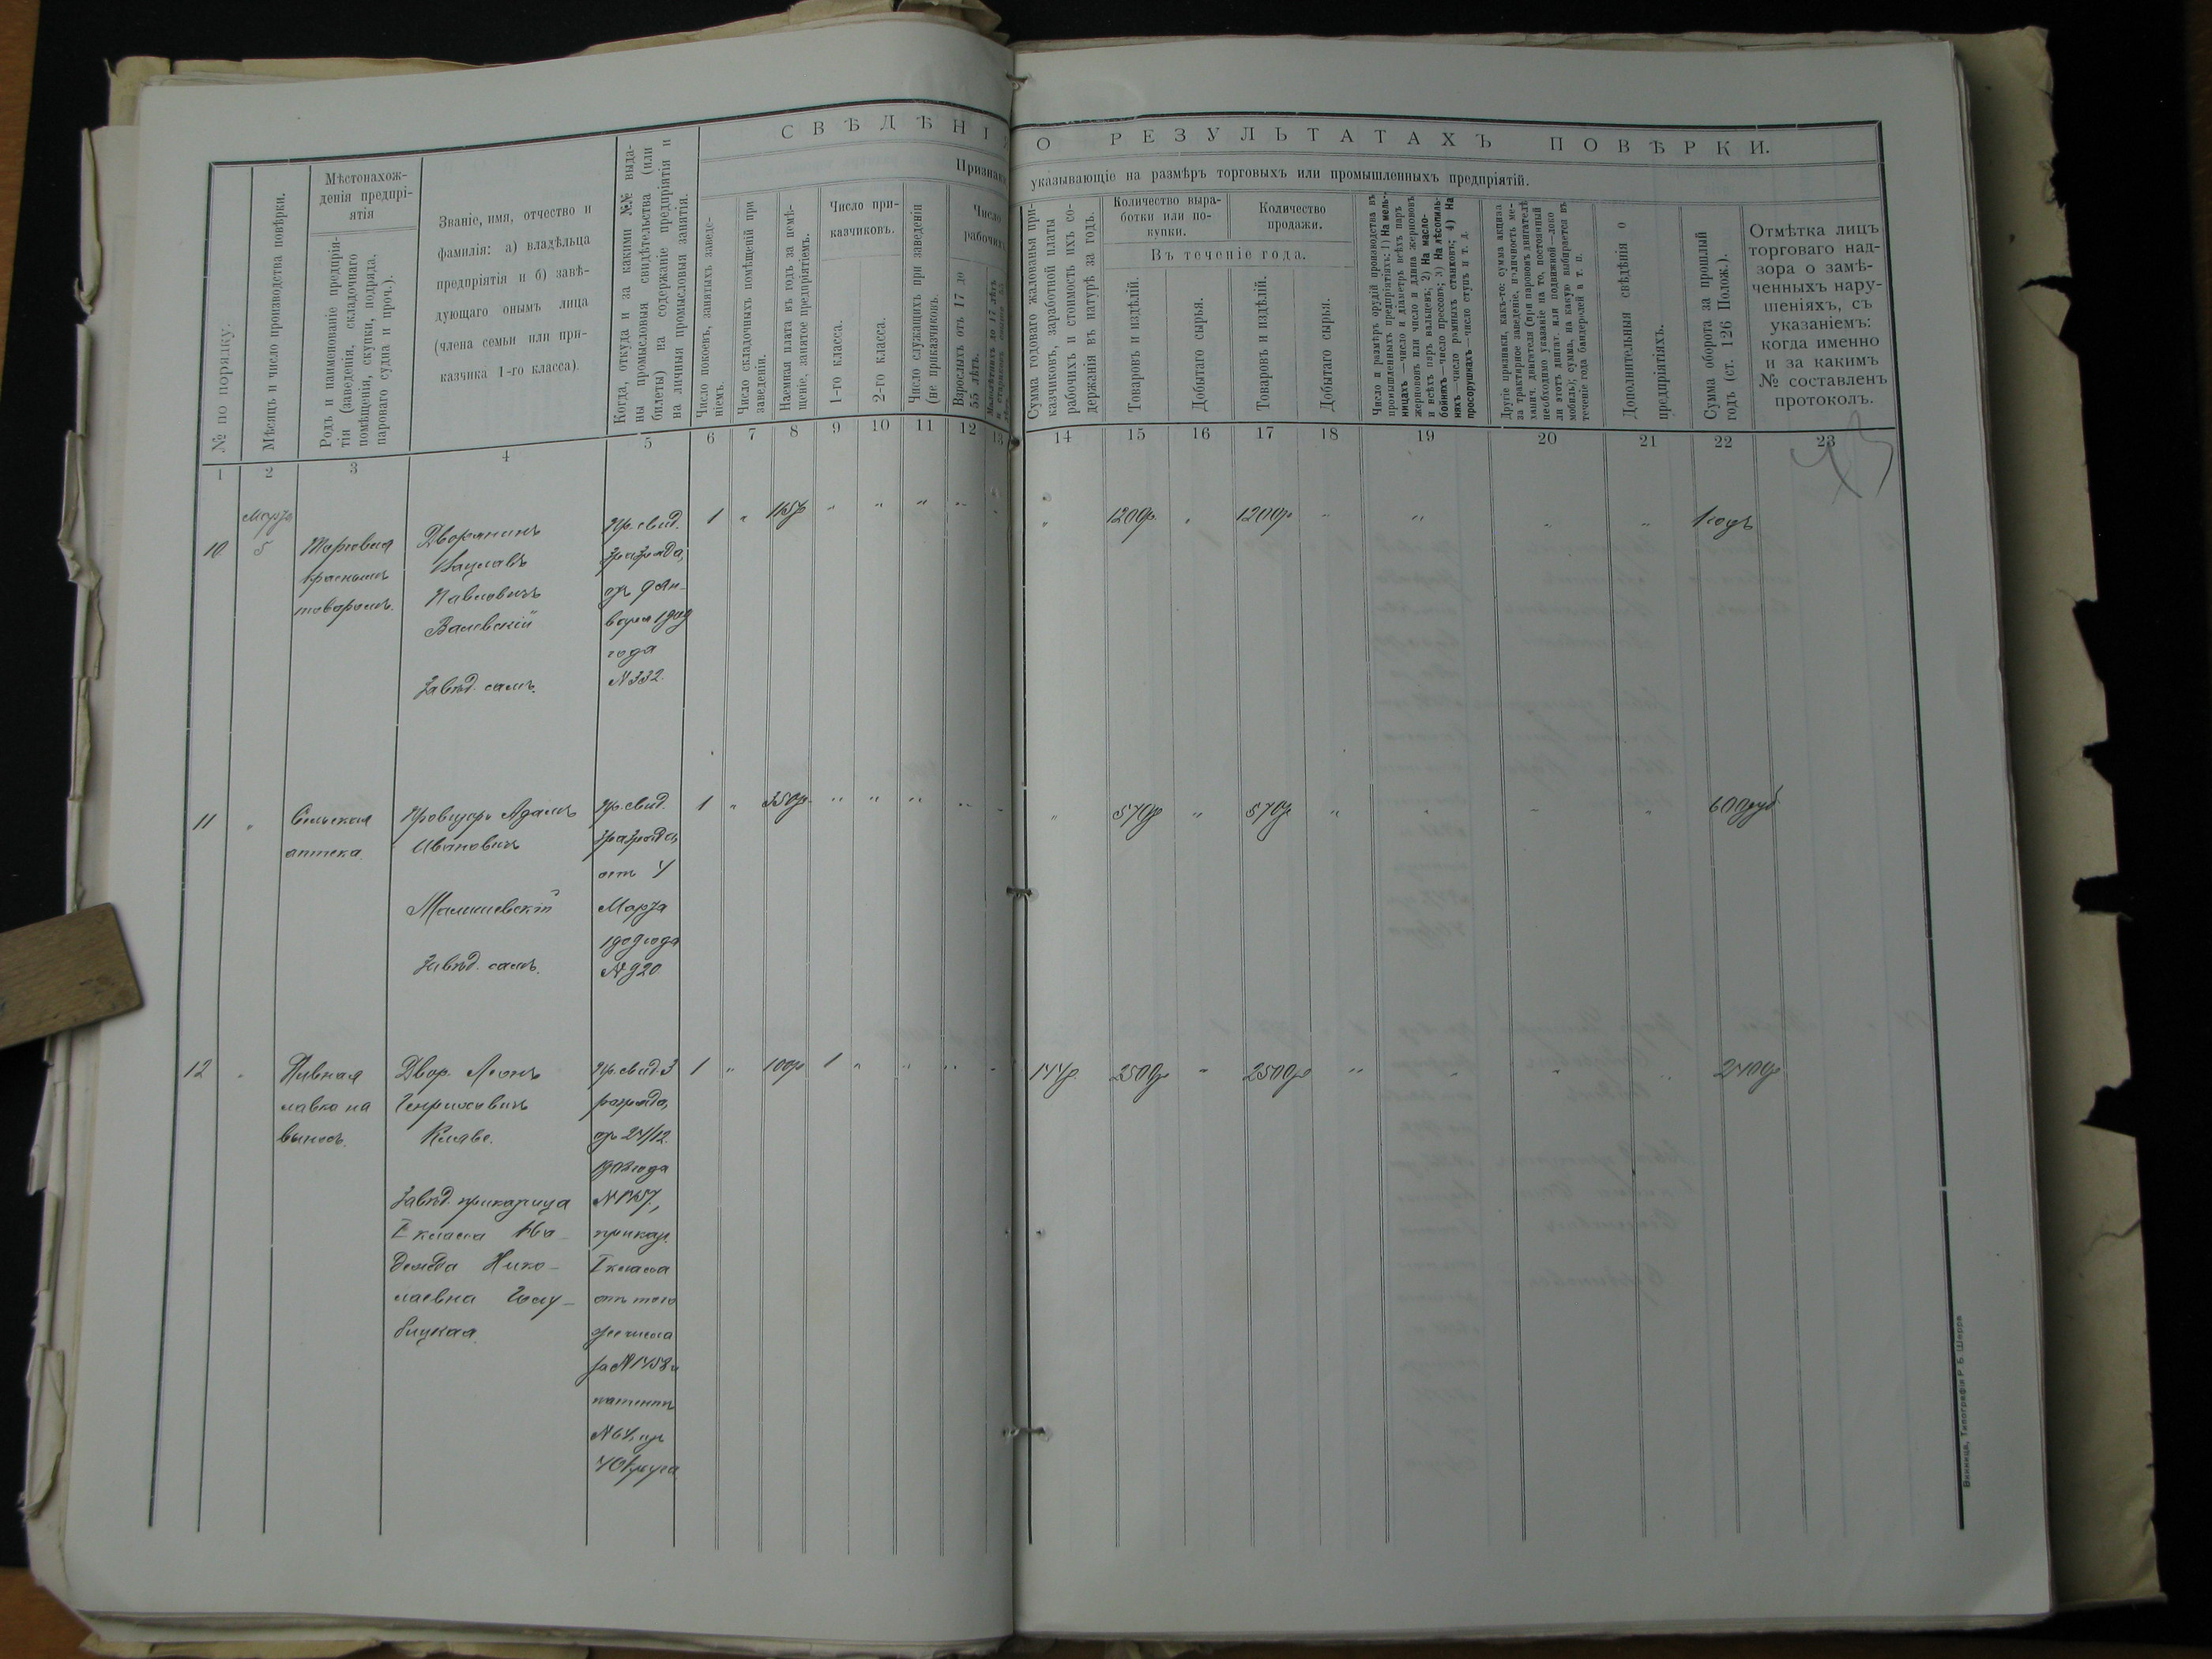 СВѢДѢНІЯ О РЕЗУЛЬТАТАХЪ ПОВѢРКИ.
Признаки, указывающіе на размѣръ торговыхъ или промышленныхъ предпріятій.
№ по порядку.
Мѣсяцъ и число производства повѣрки.
Мѣстонахож-
денія предпрі-
ятія
Родъ и наименованіе предпрія-
тія (заведенія, складочнаго
помѣщенія, скупки, подряда,
пароваго судна и проч.).
Званіе, имя, отчество и
фамилія: а) владѣльца
предпріятія и б) завѣ-
дующаго онымъ лица
(члена семьи или при-
казчика 1-го класса).
Когда, откуда и за какими №№ выда-
ны промысловыя свидѣтельства (или
билеты) на содержаніе предпріятія и
на личныя промысловыя занятія.
Число покоевъ, занятыхъ заведе-
ніемъ.
Число складочныхъ помѣщеній при
заведеніи.
Наемная плата въ годъ за помѣ-
щеніе, занятое предпріятіемъ.
Число при-
казчиковъ.
1-го класса.
2-го класса.
Число служащихъ при заведеніи
(не приказчиковъ).
Число
рабочихъ
Взрослыхъ отъ 17 до
55 лѣтъ.
Малолѣтнихъ до 17 лѣтъ
Сумма годоваго жалованья при-
казчиковъ, заработной платы
рабочихъ и стоимость ихъ со-
держанія въ натурѣ за годъ.
Количество выра-
ботки или по-
купки.
Количество
продажи.
Въ теченіе года.
Товаровъ и издѣлій.
Добытаго сырья.
Товаровъ и издѣлій.
Добытаго сырья.
Число и размѣръ орудій производства въ
промышленныхъ предпріятіяхъ: 1) На мель-
ницахъ—число и діаметръ всѣхъ паръ
жернововъ или число и длина жернововъ
и всѣхъ паръ вальцевъ; 2) На масло-
бойняхъ—число прессовъ; 3) На лѣсопиль-
няхъ—число рамныхъ станковъ; 4) На
просорушкахъ—число ступъ и т. д.
Другіе признаки, какъ-то: сумма акциза
за трактирное заведеніе, наличность ме-
ханич. двигателя (при паровомъ двигателѣ
необходимо указаніе на то, постоянный
ли этотъ двигат. или подвижной—локо
мобиль); сумма, на какую выбирается въ
теченіе года бандеролей и т. п.
Дополнительныя свѣдѣнія о
предпріятіяхъ.
Сумма оборота за прошлый
годъ (ст. 126 Полож.).
Отмѣтка лицъ
торговаго над-
зора о замѣ-
ченныхъ нару-
шеніяхъ, съ
указаніемъ:
когда именно
и за какимъ
№ составленъ
протоколъ.
1 2 3 4 5 6 7 8 9 10 11 12 13 14 15 16 17 18 19 20 21 22 23
10
Марта
5
Торговля
краснымъ
товаромъ.
Дворянинъ
Вацлавъ
Павловичъ
Валевскій
Завѣд. самъ.
Пр. свид.
3 разряда,
отъ 9 Ян-
варя 1909
года
№ 332.
1 " " " " " "
" 1200р. " 1200р " " " " 1 годъ
11 "
Сельская
аптека.
Провизоръ Адамъ
Ивановичъ
Малишевскій
Завѣд. самъ.
Пр. свид.
3 разряда,
отъ 4
Марта
1909 года
№ 920
1 " 350р. " " " " "
" 570р " 570р " " " " 600 руб.
12 "
Пивная
лавка на
выносъ.
Двор. Леонъ
Генриховичъ
Кляве.
Завѣд. приказчица
I класса На-
дежда Нико-
лаевна Голу-
бицкая.
Пр. свид. 3
разряда,
отъ 24/12
1908 года
№ 1457,
приказ.
I класса
отъ того
же числа
за № 1458 и
патентъ
№ 64, отъ
4 Округа
1 " 100р 1 " " " "
144р. 2500р " 2500р " " " " 2400р
Винница, Типографія Р. Б. Шерра